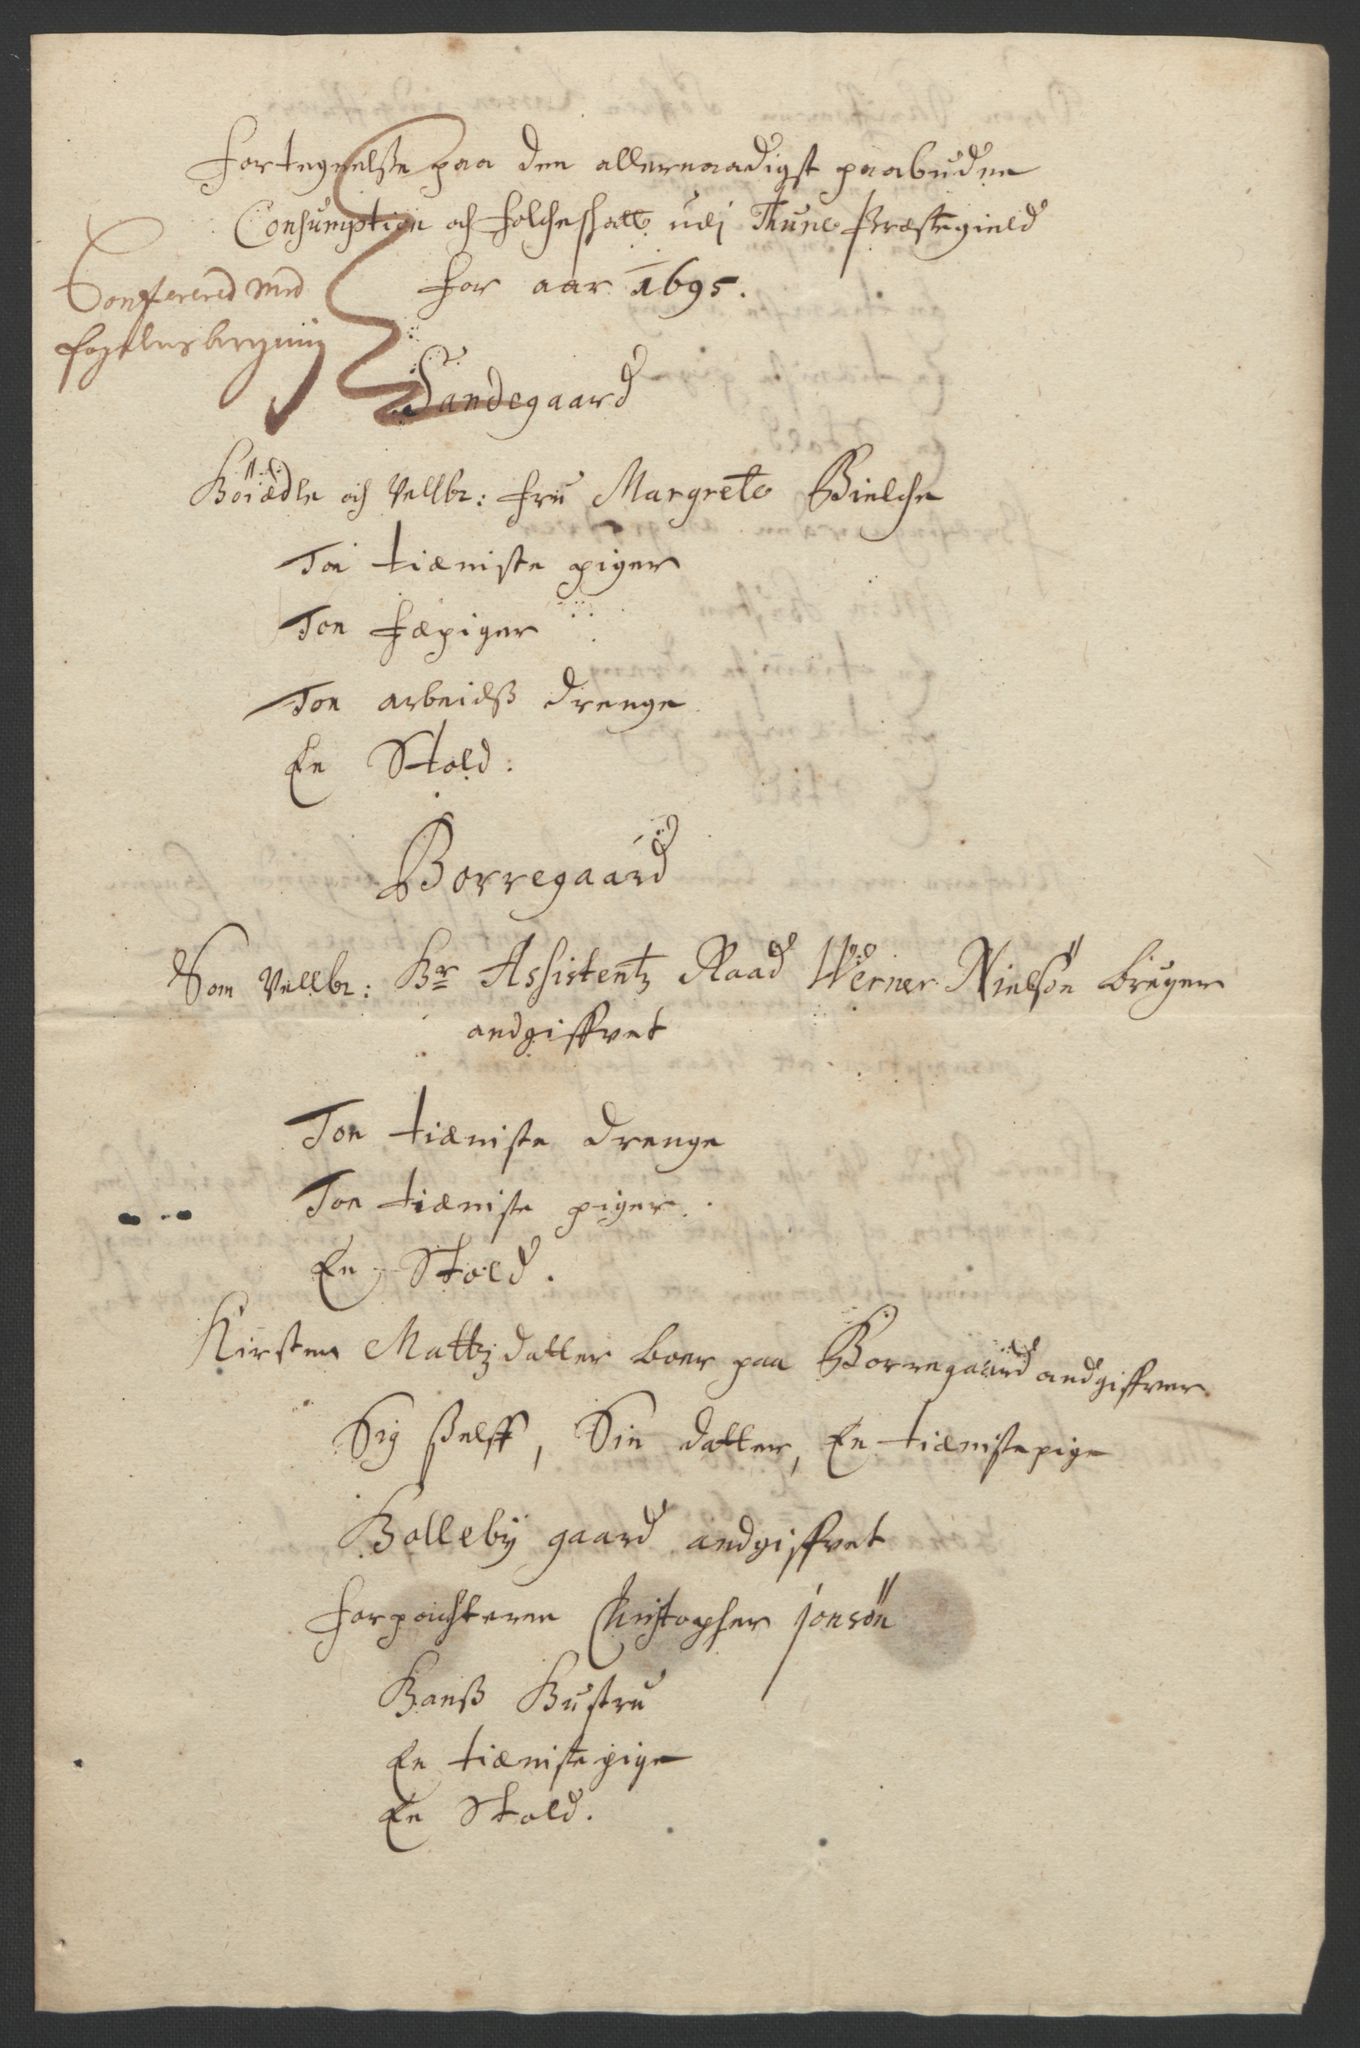 Fortegnelsse paa den allernaadigst paabudne
Consumption och folcheskatt udj Thune Præstegield
for aar 1695.
Confererd med
Sandegaard
Höiædle och Vellbr: Fru Margrete Bielche
Toe tiæniste piger
Toe fæpiger
Toe arbeidss drenge
En Stald.
Borregaard
Som Vellbr: Hr Assistentz Raad Werner Nielsön bruger
andgiffvet
Toe tiæniste drenge
Toe tiæniste piger.
En Stald.
Kirsten Mattzdatter boer paa Borregaard andgiffver
Sig sselff, Sin datter, En tiænistepige
Bolleby gaard andgiffvet
forpachteren Christopher Jonsön
Hanss Hustru
En tiænistepige
En Stald.